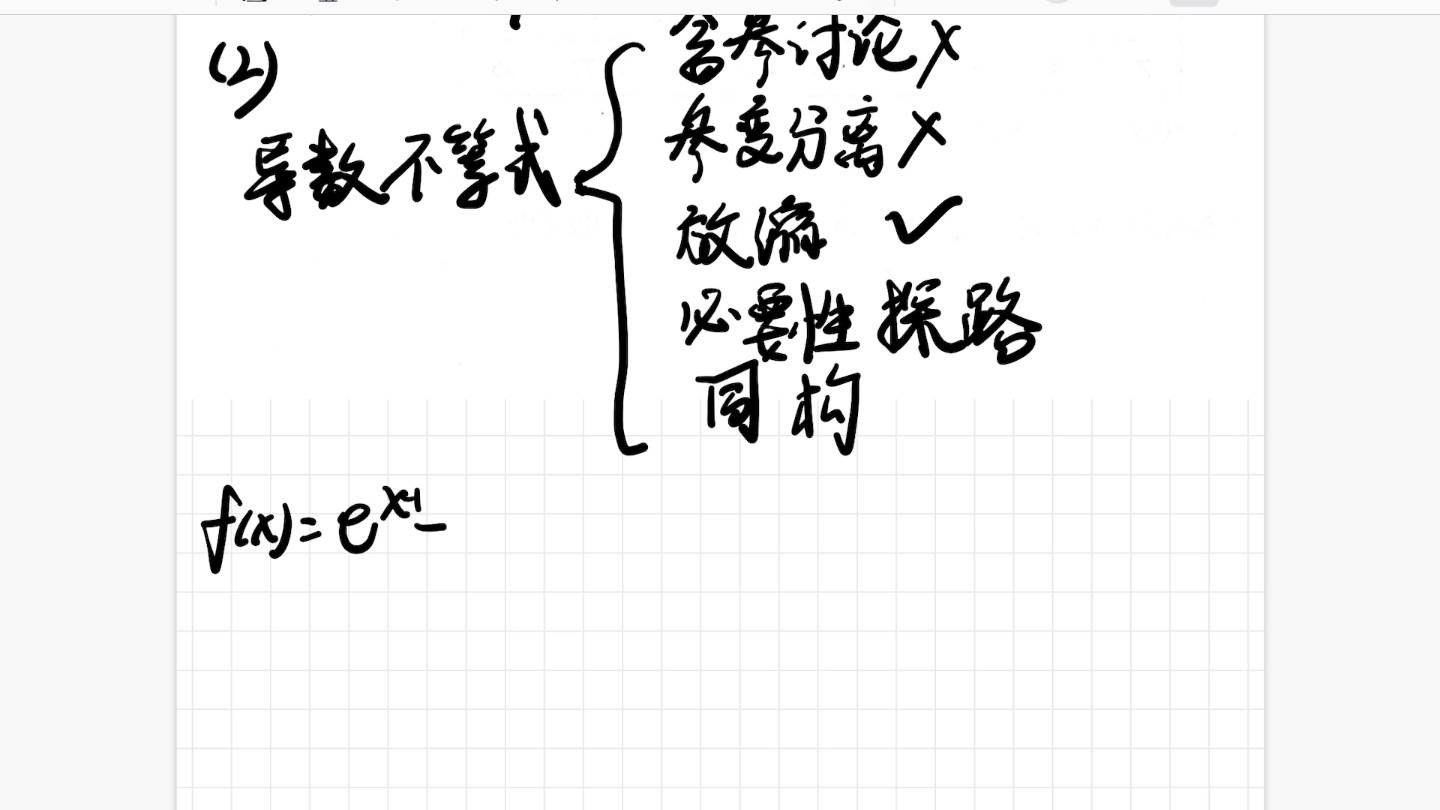 (2)
导数不等式
含参讨论 ×
参变分离 ×
放缩 ✓
必要性探路
同构
f(x)=e^{x-1}-